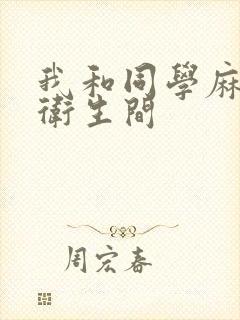 我和同學麻
衛生間
周宏春